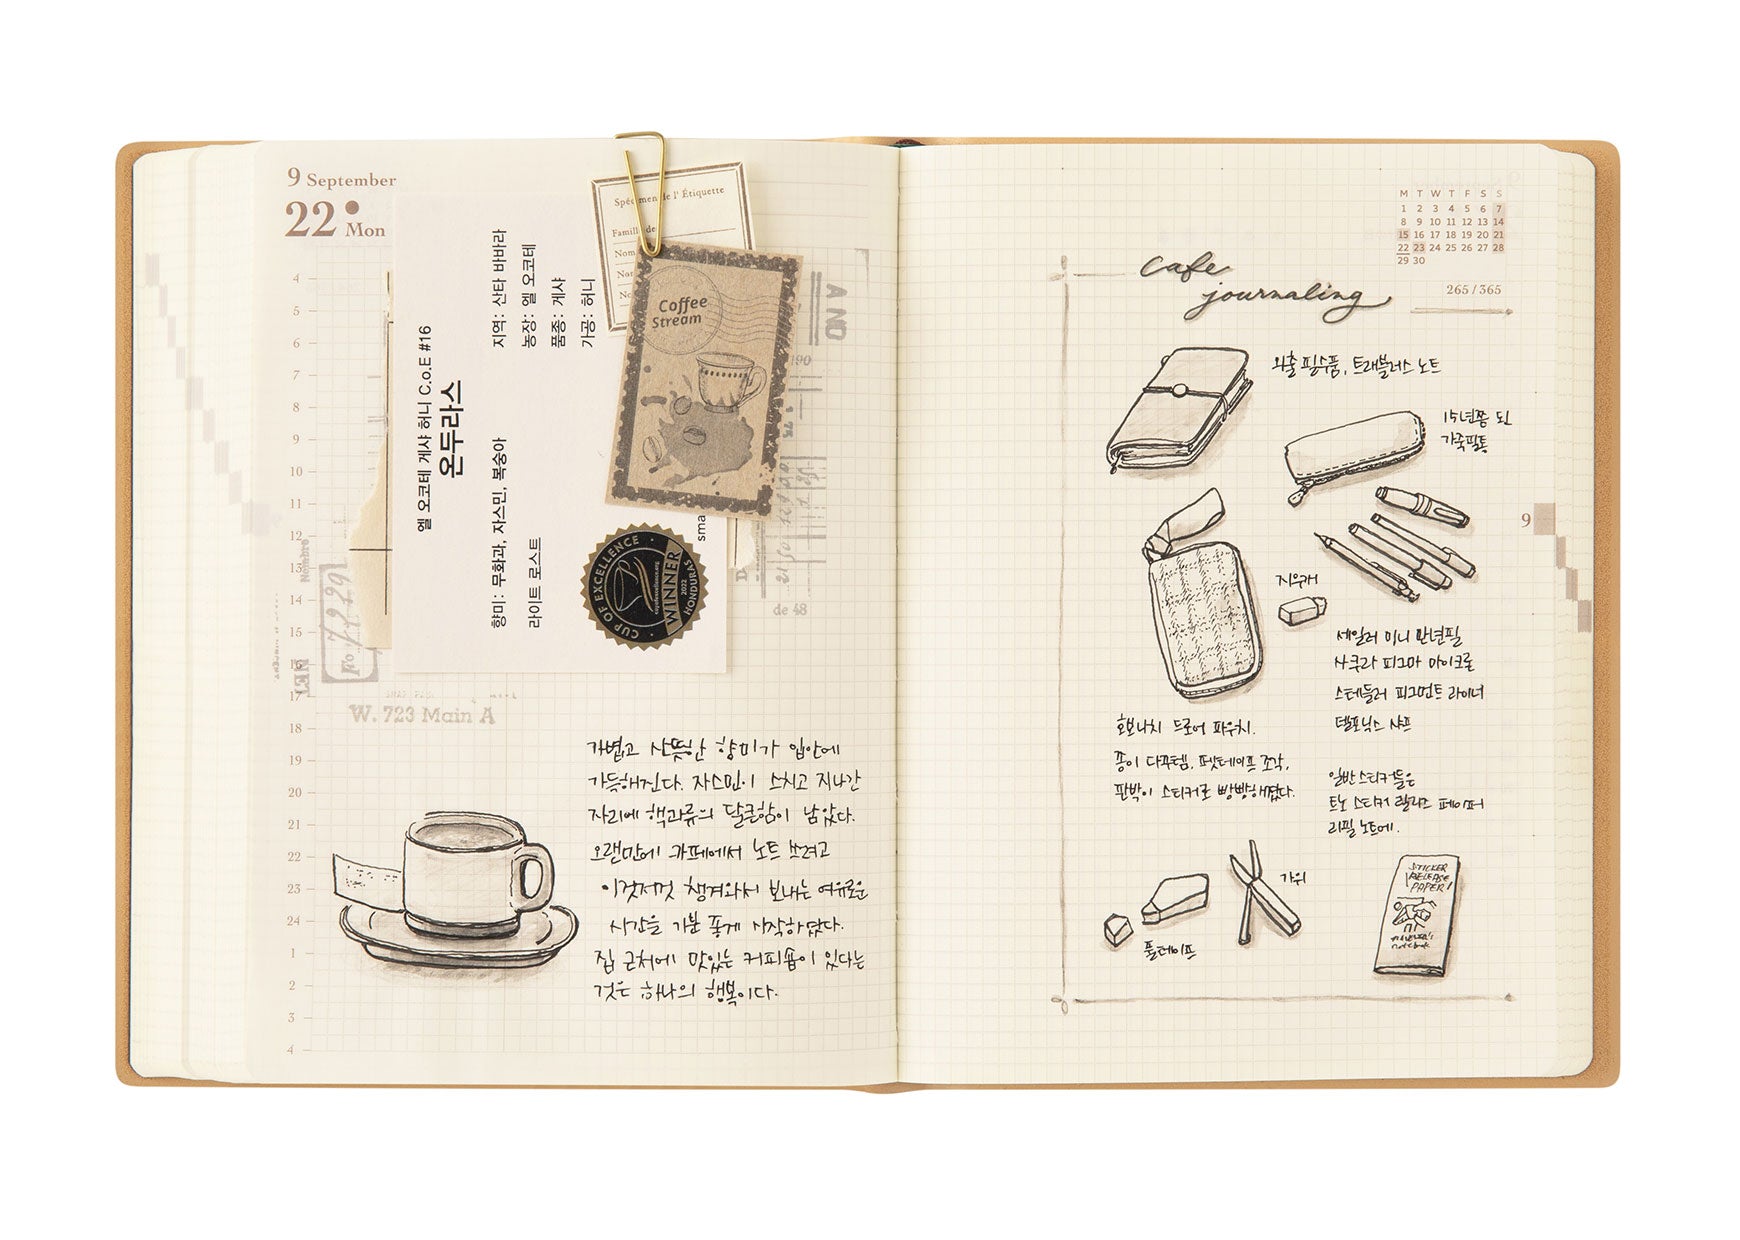 9 September
22 Mon
4
5
6
7
8
9
10
11
12
13
14
15
16
17
18
19
20
21
22
23
24
1
2
3
4
엘 오코테 게샤 허니 C.o.E #16
온두라스
지역: 산타 바바라
농장: 엘 오코테
품종: 게샤
가공: 허니
향미: 무화과, 자스민, 복숭아
라이트 로스트
sma
CUP OF EXCELLENCE
WINNER
2022
HONDURAS
Spécimen de l' Étiquette
Famille de
Nom
No
No
Coffee
Stream
AND
190
de 48
Nombre
No 7229
W. 723 Main A
가볍고 산뜻한 향미가 입안에
가득해진다. 자스민이 스치고 지나간
자리에 핵과류의 달큰함이 남았다.
오랜만에 카페에서 노트 쓰려고
이것저것 챙겨와서 보내는 여유로운
시간을 기분 좋게 시작하였다.
집 근처에 맛있는 커피숍이 있다는
것은 하나의 행복이다.
M T W T F S S
1 2 3 4 5 6 7
8 9 10 11 12 13 14
15 16 17 18 19 20 21
22 23 24 25 26 27 28
29 30
265/365
cafe
journaling
외출 필수품, 트래블러스 노트
15년쯤 된
가죽필통
지우개
세일러 미니 만년필
사쿠라 피그마 마이크로
스테들러 피그먼트 라이너
델포닉스 샤프
호보니치 드로어 파우치.
종이 다꾸템, 마스킹테이프 조각,
판박이 스티커로 빵빵해졌다.
일반 스티커들은
트노 스티커 릴리스 페이퍼
리필 노트에.
풀테이프
가위
STICKER
RELEASE
PAPER!
TRAVELER'S
notebook
9